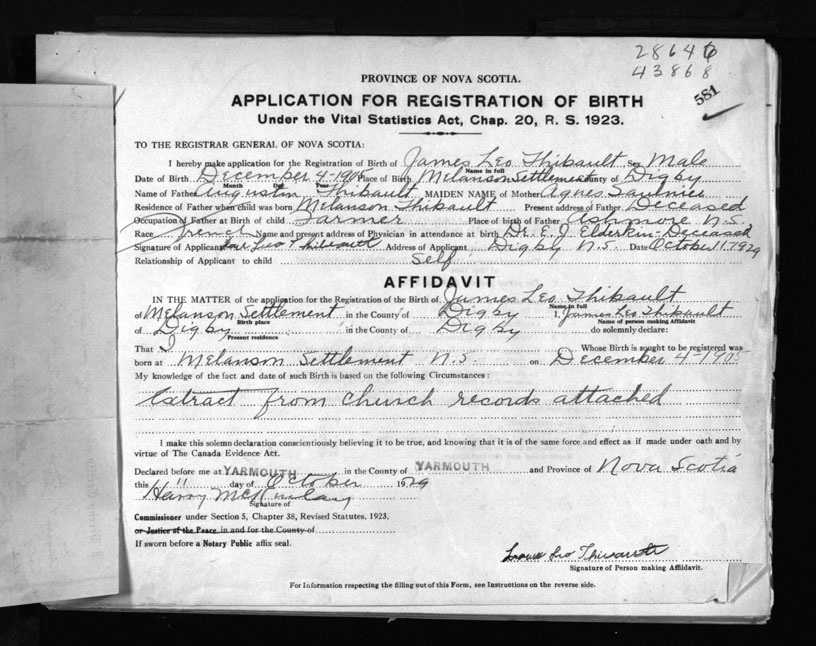 28646
43868
581
PROVINCE OF NOVA SCOTIA.
APPLICATION FOR REGISTRATION OF BIRTH
Under the Vital Statistics Act, Chap. 20, R. S. 1923.
TO THE REGISTRAR GENERAL OF NOVA SCOTIA:
I hereby make application for the Registration of Birth of James Leo Thibault Sex Male
Name in full
Date of Birth December 4-1905 Place of Birth Melanson Settlement County of Digby
Month Day Year
Name of Father Augustin Thibault MAIDEN NAME of Mother Agnes Saulnier
Residence of Father when child was born Melanson Thibault Present address of Father Deceased
Occupation of Father at Birth of child Farmer Place of birth of Father Ashmore N.S.
Race French Name and present address of Physician in attendance at birth Dr. E. J. Elderkin-Deceased
Signature of Applicant Leo Thibault Address of Applicant Digby N.S. Date October 11, 1929
Relationship of Applicant to child Self
AFFIDAVIT
IN THE MATTER of the application for the Registration of the Birth of James Leo Thibault
Name in full
of Melanson Settlement in the County of Digby I, James Leo Thibault
Birth place Name of person making Affidavit
of Digby in the County of Digby do solemnly declare:
Present residence
That I Whose Birth is sought to be registered was
born at Melanson Settlement N.S. on December 4-1905
My knowledge of the fact and date of such Birth is based on the following Circumstances:
Extract from church records attached
I make this solemn declaration conscientiously believing it to be true, and knowing that it is of the same force and effect as if made under oath and by
virtue of The Canada Evidence Act.
Declared before me at YARMOUTH in the County of YARMOUTH and Province of Nova Scotia
this 11 day of October 1929
Harry McKinlay
Signature of
Commissioner under Section 5, Chapter 38, Revised Statutes, 1923,
or Justice of the Peace in and for the County of
If sworn before a Notary Public affix seal.
Leo Thibault
Signature of Person making Affidavit.
For Information respecting the filling out of this Form, see Instructions on the reverse side.